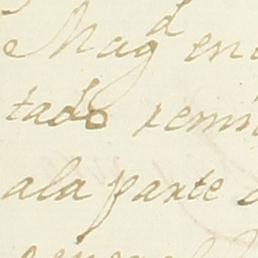 Magd en
tado remi
ala parte